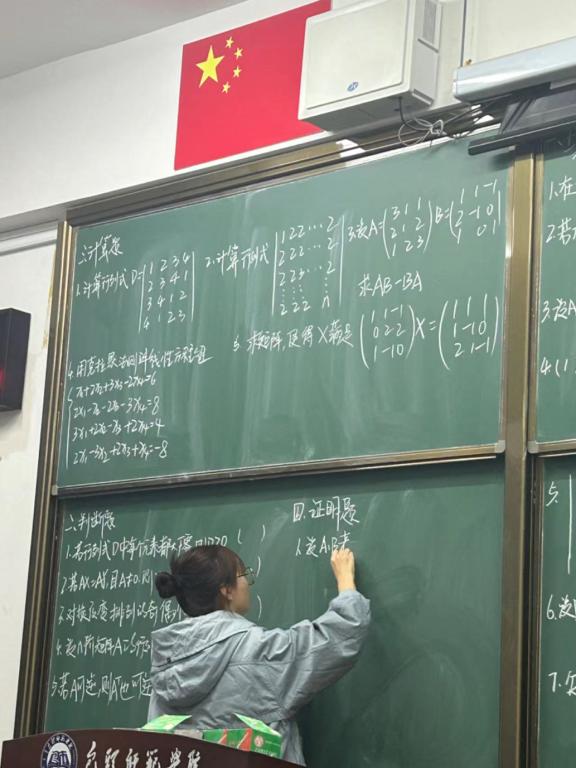 三.计算题
1.计算行列式 D=
1 2 3 4
2 3 4 1
3 4 1 2
4 1 2 3
2.计算行列式
1 2 2 ⋯ 2
2 2 2 ⋯ 2
2 2 3 ⋯ 2
⋮ ⋮ ⋮ ⋮
2 2 2 n
3.设A=
3 1 1
2 1 2
1 2 3
B=
1 1 -1
2 -1 0
1 0 1
求AB-BA
4.用克拉默法则解线性方程组
x₁+2x₂+3x₃-2x₄=6
2x₁-x₂-2x₃-3x₄=8
3x₁+2x₂-x₃+2x₄=4
2x₁-3x₂+2x₃+x₄=-8
5.求矩阵,使得X满足
1 1 -1
0 2 2
1 -1 0
X=
1 1 1
1 -1 0
2 1 -1
二.判断题
1.若行列式D中每个元素都大于零,则D>0 ( )
2.若AX=AY,且A≠0,则
3.对换改变排列的奇偶
4.设n阶矩阵A
5.若A可逆,则Aᵀ也可逆
四.证明题
1.设A,B
1.在
2.若
3.设A
4.(1
5.
6.设
7.